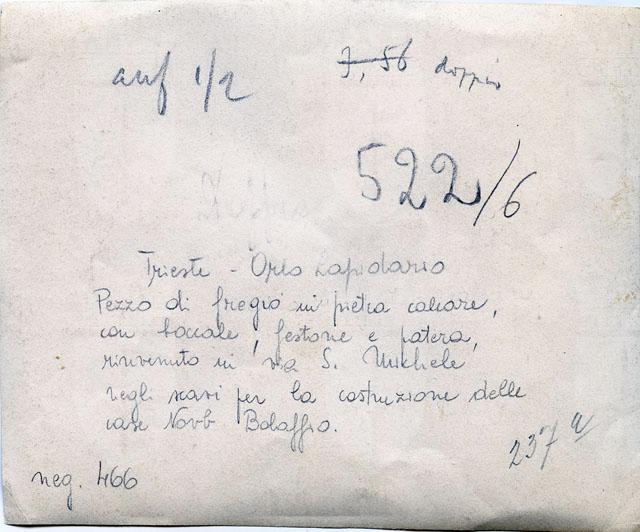 auf 1/2
7, 56 doppio
522/6
Trieste - Orto Lapidario
Pezzo di fregio in pietra calcare,
con boccale, festone e patera,
rinvenuto in via S. Michele
negli scavi per la costruzione delle
case Bolaffio.
237 a
neg. 466